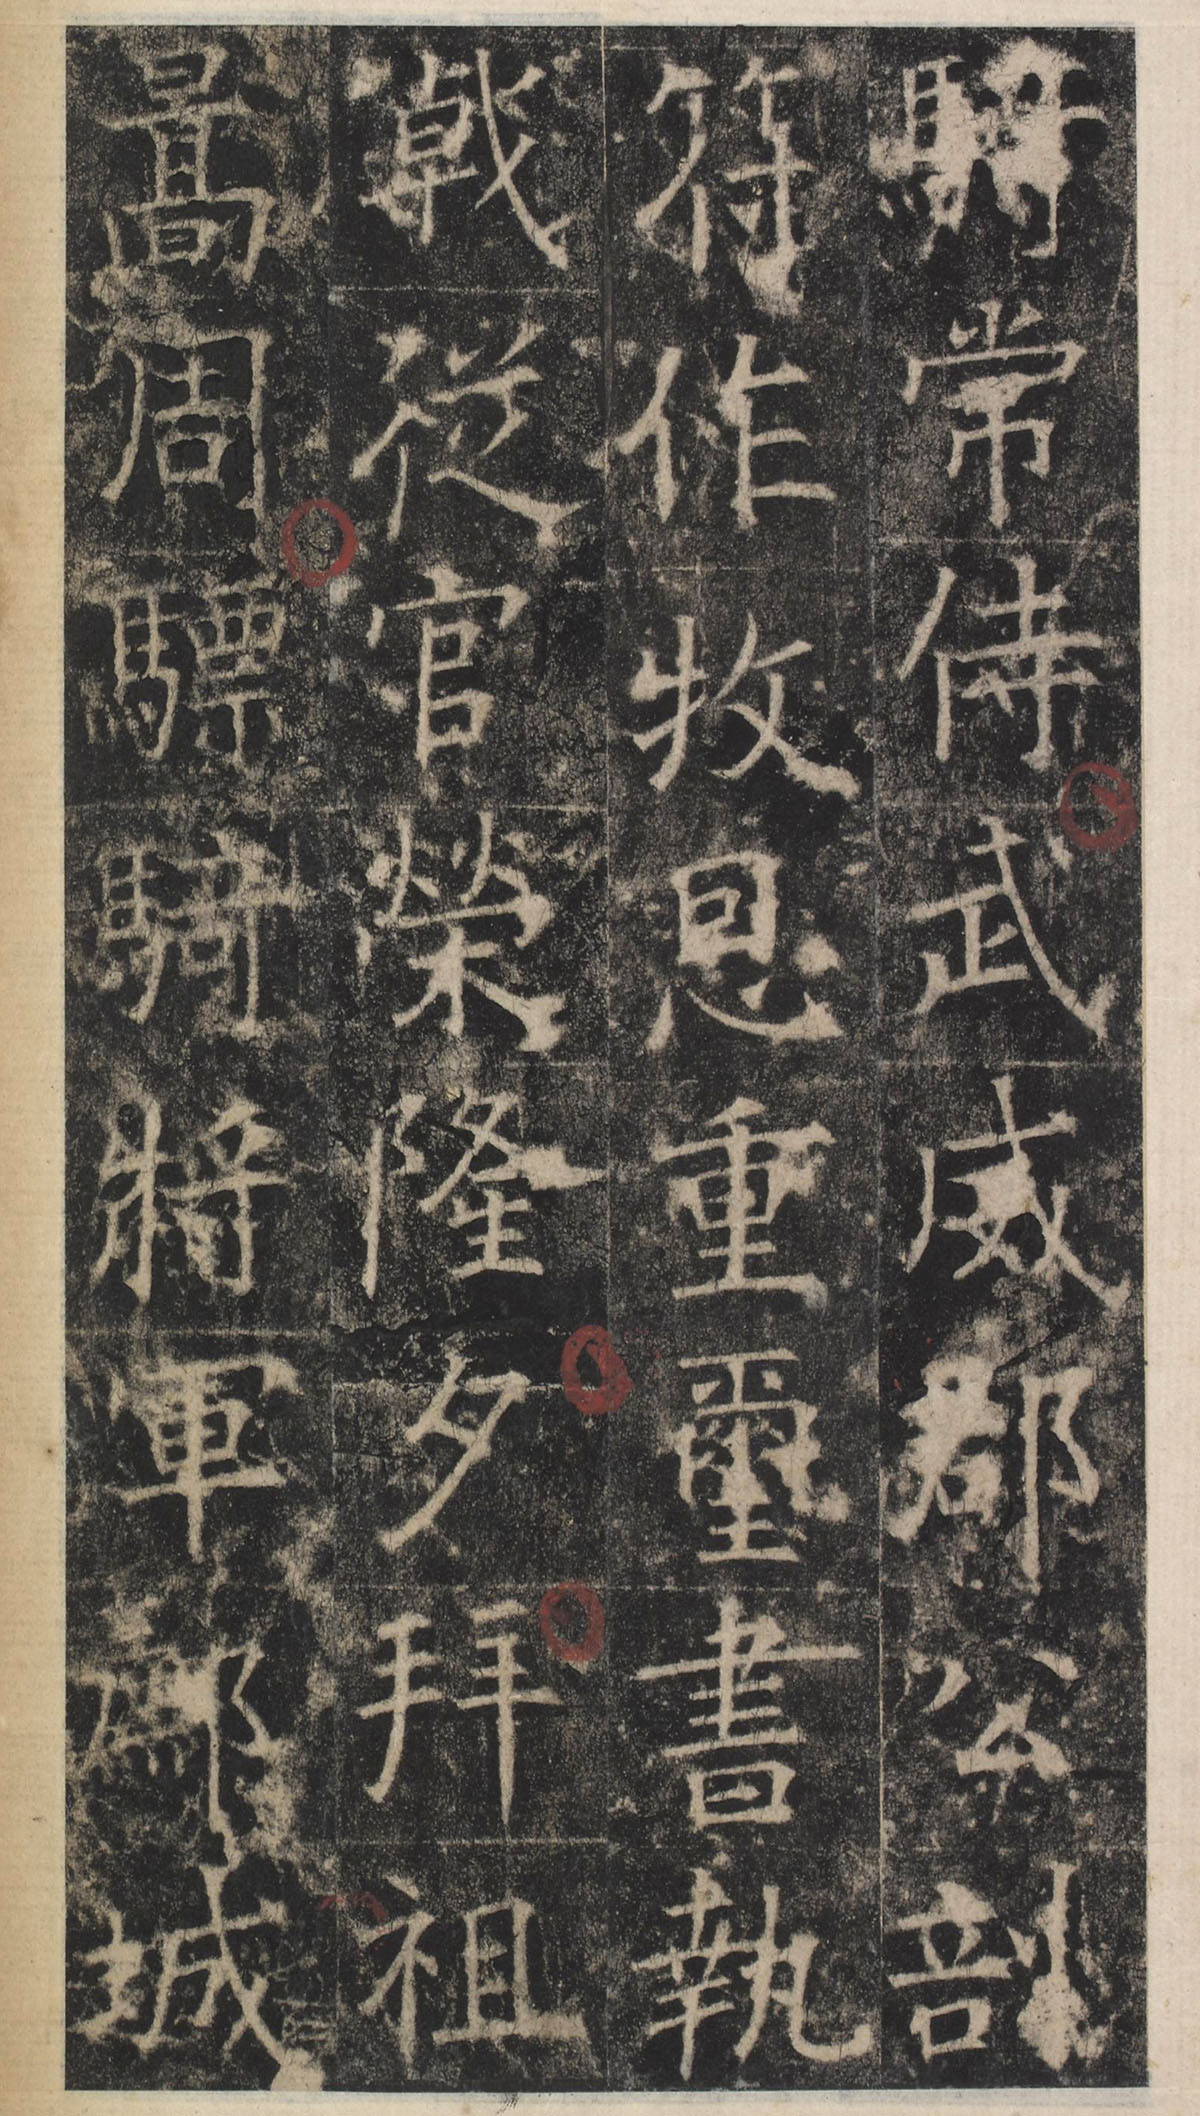 騎常侍武威郡公剖
符作牧恩重璽書執
戟從官榮隆夕拜祖
暠周驃騎將軍鄢城